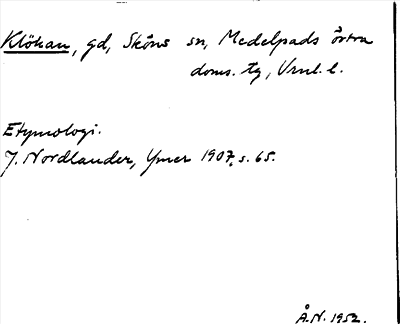 Klökan, gd, Sköns sn, Medelpads östra
doms. tg, Vrnl. l.
Etymologi.
J. Nordlander, Ymer 1907, s. 65.
Å.N. 1952.